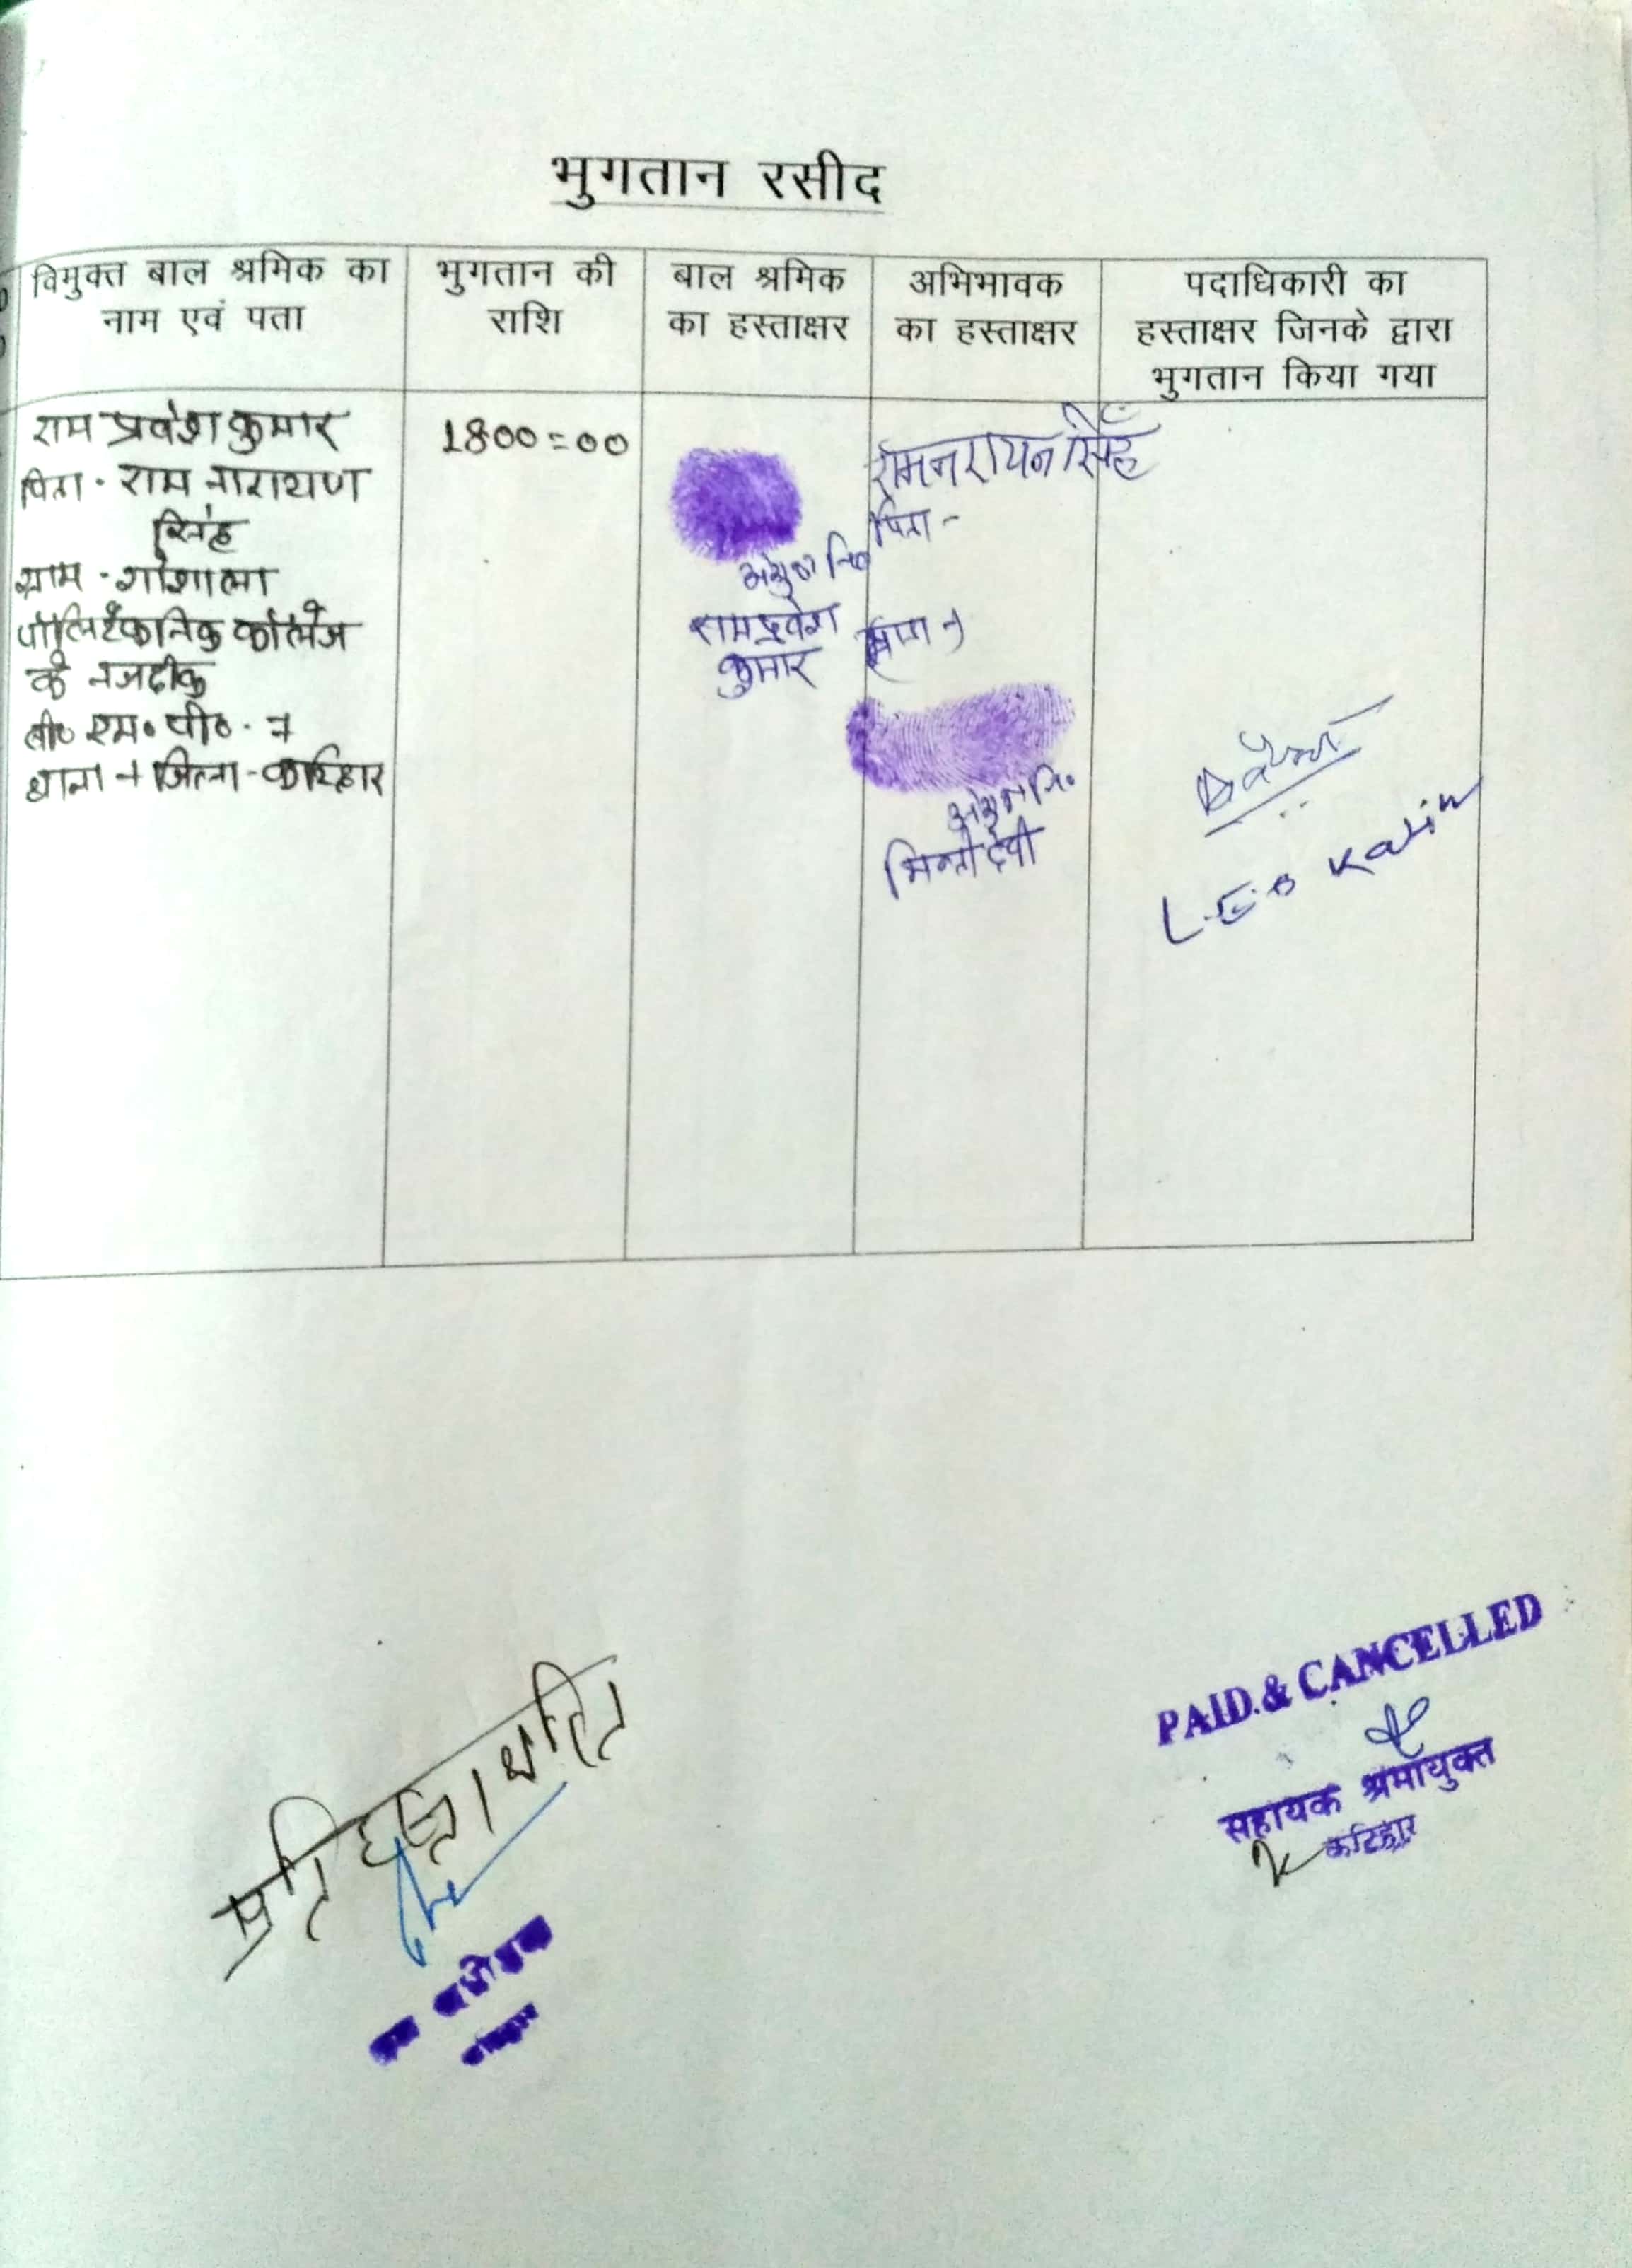 भुगतान रसीद
विमुक्त बाल श्रमिक का
नाम एवं पता
भुगतान की
राशि
बाल श्रमिक
का हस्ताक्षर
अभिभावक
का हस्ताक्षर
पदाधिकारी का
हस्ताक्षर जिनके द्वारा
भुगतान किया गया
राम प्रवेश कुमार
पिता - राम नारायण
सिंह
ग्राम - गोशाला
पोलिटेकनिक कॉलेज
के नजदीक
बी० एम० पी० - 7
थाना + जिला - कटिहार
1800=00
रामप्रवेश
कुमार
रामनरायन सिंह
पिता -
देवी
L.E.O
PAID & CANCELLED
सहायक श्रमायुक्त
कटिहार